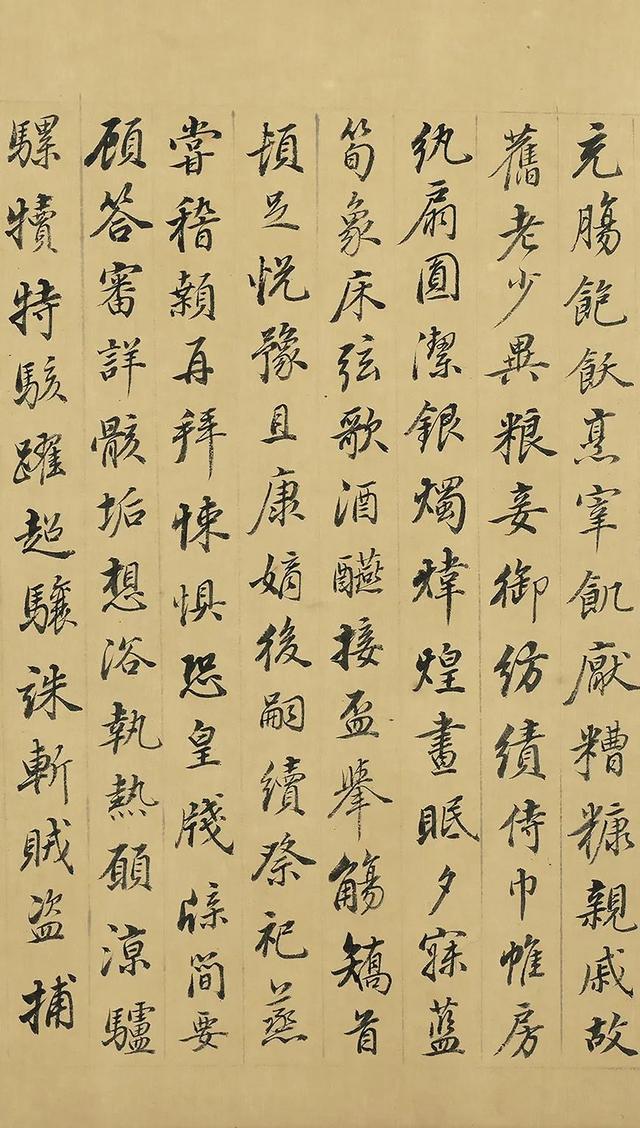 充腸飽飫烹宰飢厭糟糠親戚故
舊老少異粮妾御紡績侍巾帷房
紈扇圓潔銀燭煒煌晝眠夕寐藍
筍象床弦歌酒醼接盃舉觴矯首
頓足悅豫且康嫡後嗣續祭祀蒸
甞稽顙再拜悚懼恐皇牋牒簡要
顧答審詳骸垢想浴執熱願涼驢
騾犢特駭躍超驤誅斬賊盜捕